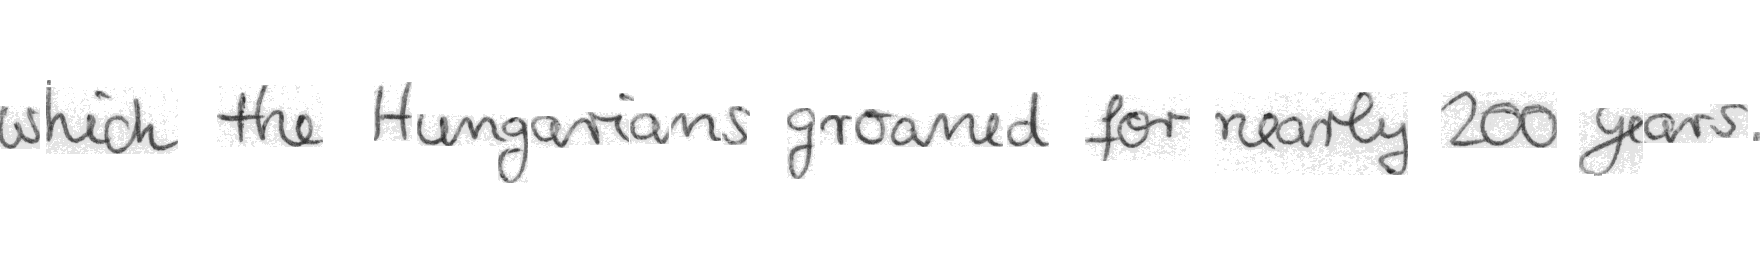 which the Hungarians groaned for nearly 200 years.